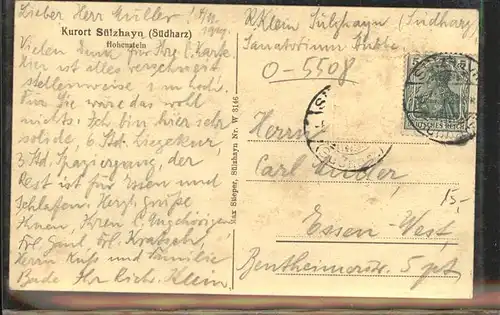 Lieber Herr Müller!
Kurort Sülzhayn (Südharz)
Hohenstein
Vielen Dank für Ihre l. Karte.
Hier ist alles verschneit
stellenweise 1 m hoch.
Für Sie wäre das wohl
nichts. Ich bin hier sehr
solide, 6 Std. Liegekur,
3 Std. Spaziergang, der
Rest ist für Essen und
Schlafen. Herzl. Grüße
Ihnen, Ihren l. Angehörigen
Frl. Frl.
Herrn Kuß und Familie
Ihr Rich. Klein
Max Stieper, Sülzhayn Nr. W 8146
R. Klein Sülzhayn (Südharz)
Sanatorium
O-5508
Herrn
Carl
Essen-West
Bentheimerstr. 5 pt
15,-
DEUTSCHES REICH